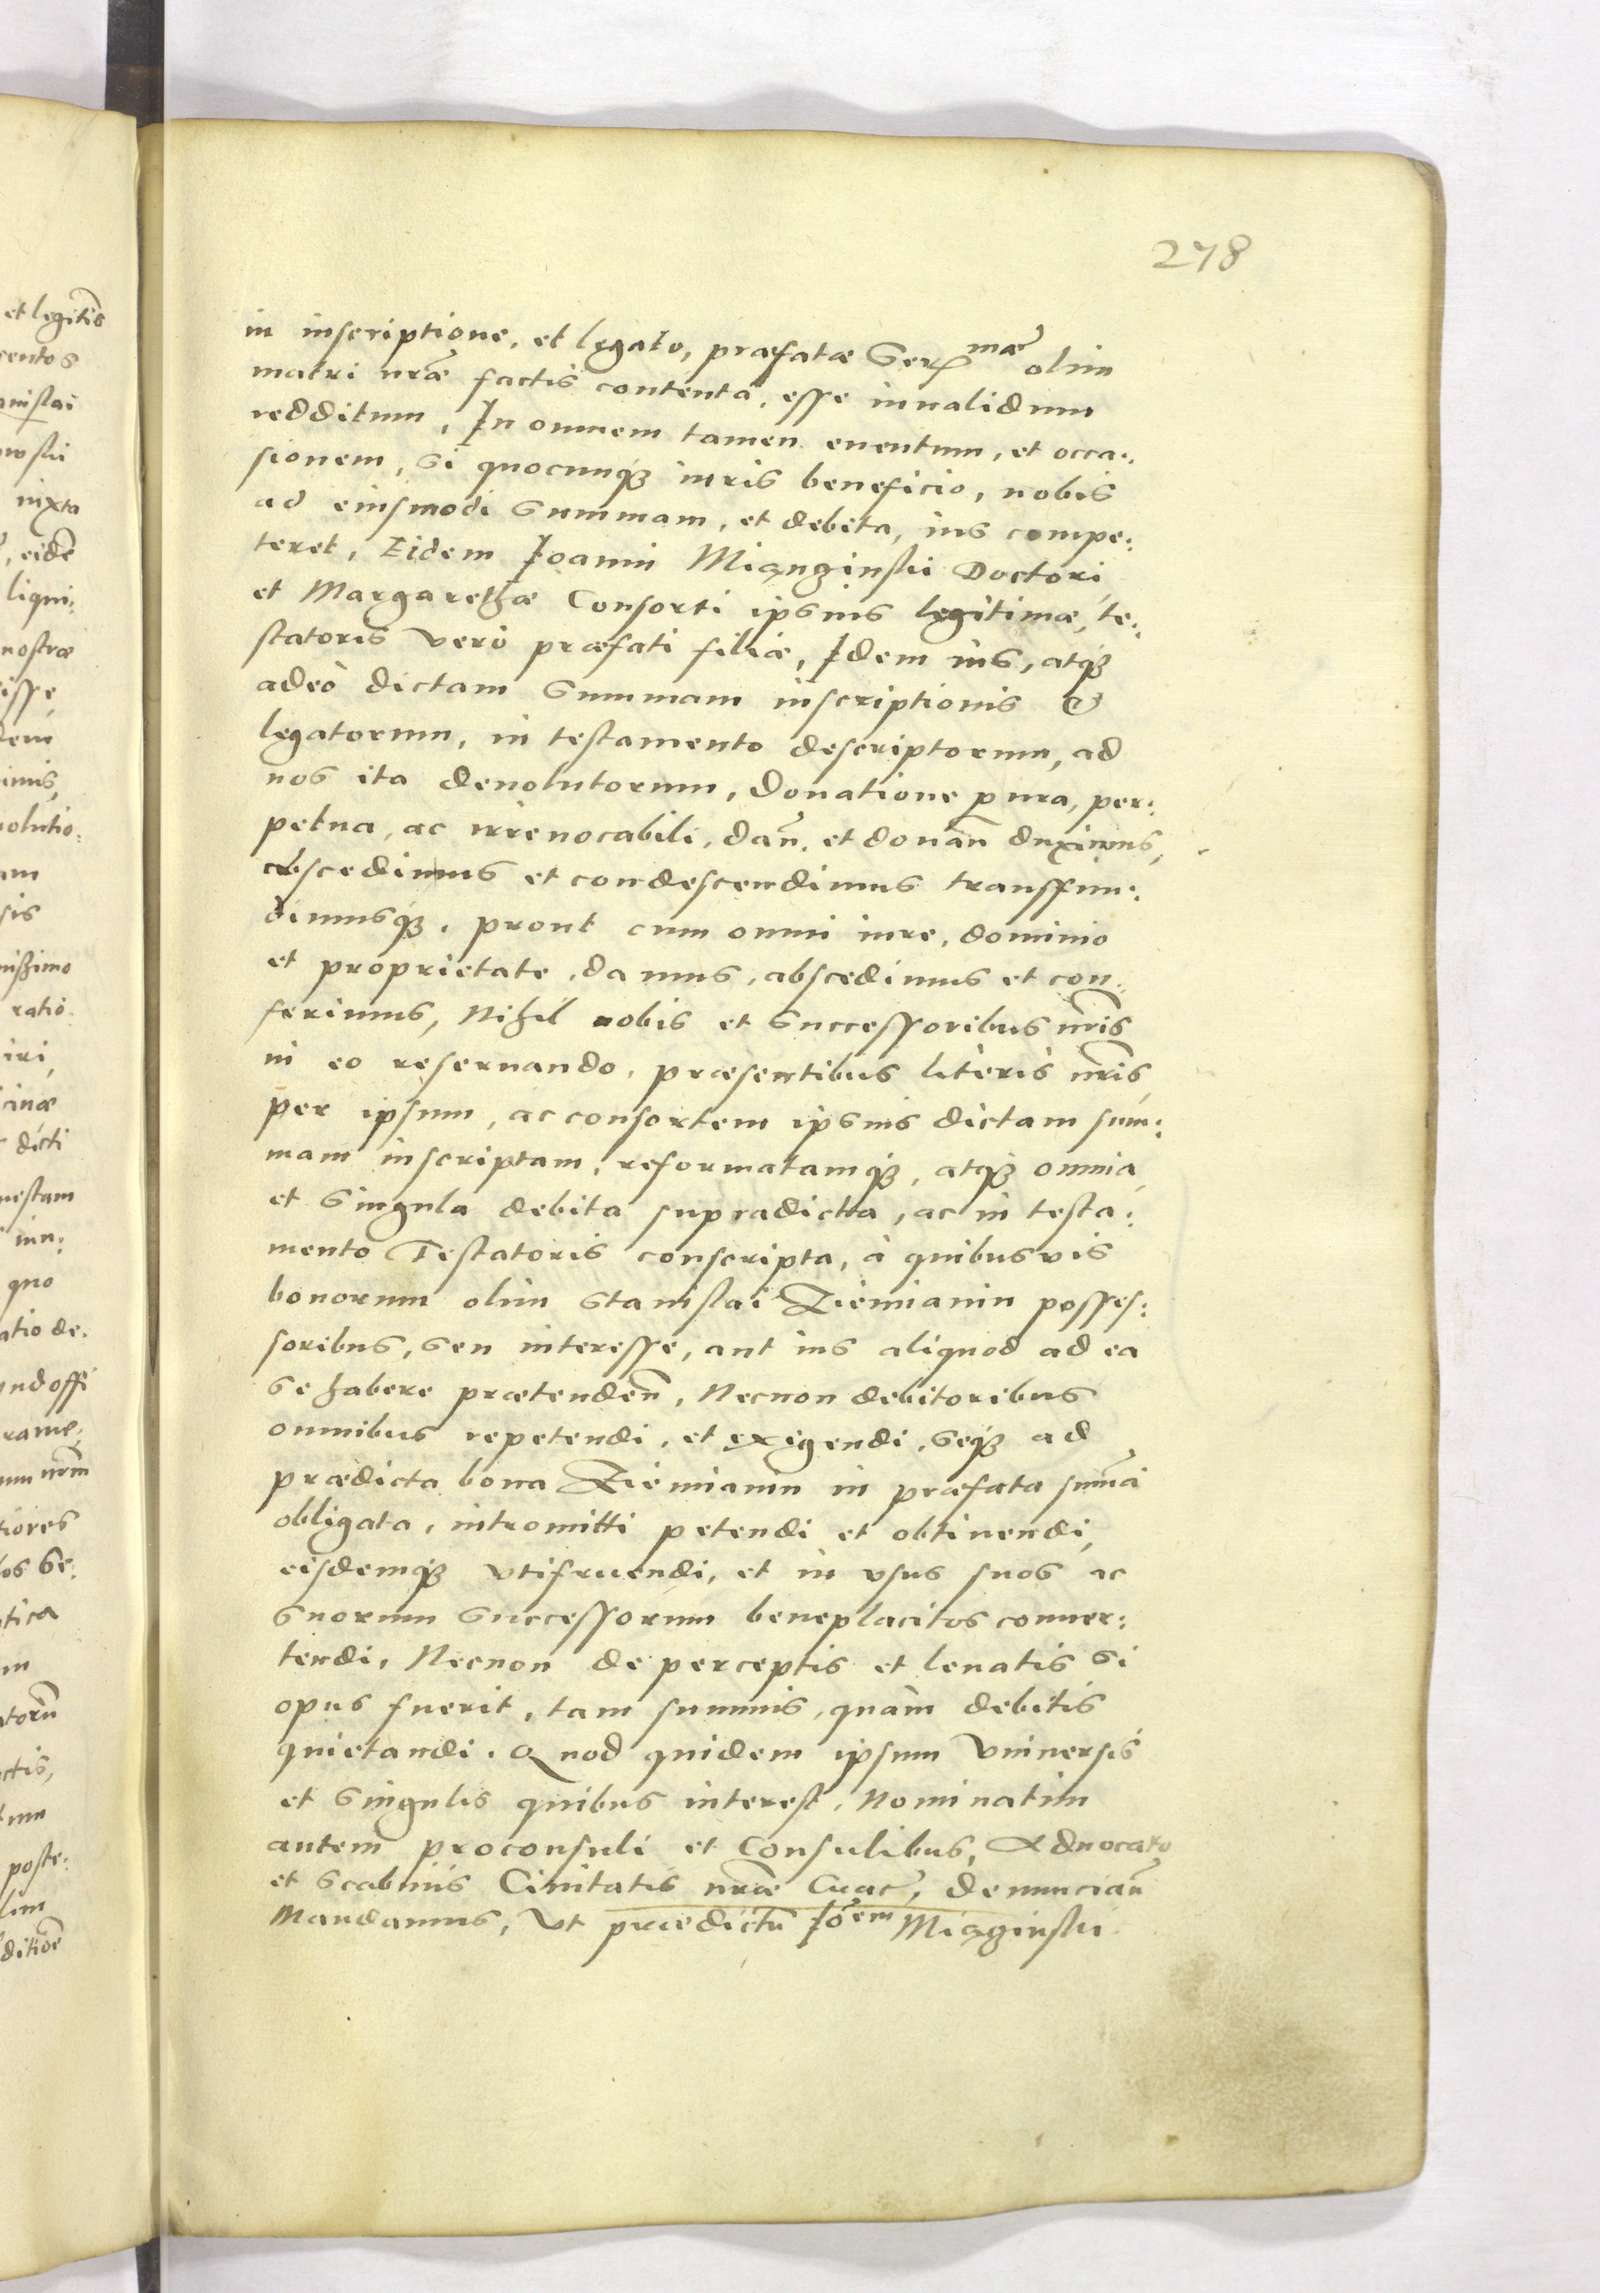 278
in inscriptione, et legato, præfatæ Ser^mæ olim
matri nræ factis contenta, esse inualidum
redditum, In omnem tamen euentum, et occa:
sionem, si quocunqꝫ iuris beneficio, nobis
ad eiusmodi summam, et debita, ius compe:
teret, Eidem Ioanni Miączinskii Doctori,
et Margarethæ Consorti ipsius legitimæ, te:
statoris verò præfati filiæ, Idem ius, atqꝫ
adeò dictam summam inscriptionis &
legatorum, in testamento descriptorum, ad
nos ita deuolutorum, Donatione pura, per:
petua, ac irreuocabili, dañ. et donañ duximus,
abscedimus et condescendimus transfun:
dimusqꝫ, prout cum omni iure, dominio
et proprietate, damus, abscedimus et con:
ferimus, Nihil nobis et successoribus nris
in eo reseruando, præsentibus literis nris
per ipsum, ac consortem ipsius dictam sum:
mam inscriptam, reformatamqꝫ, atqꝫ omnia
et singula debita supradicta, ac in testa:
mento Testatoris conscripta, à quibusvis
bonorum olim Stanislai Ziemianin posses:
soribus, seu interesse, aut ius aliquod ad ea
se habere prætendeñ, Necnon debitoribus
omnibus repetendi, et exigendi, seqꝫ ad
prædicta bona Ziemianin in præfata suma
obligata, intromitti petendi et obtinendi,
eisdemqꝫ vtifruendi, et in vsus suos ac
suorum successorum beneplacitos conuer:
tendi, Necnon de perceptis et leuatis si
opus fuerit, tam summis, quàm debitis
quietandi. Quod quidem ipsum vniuersis
et singulis quibus interest, Nominatim
autem proconsuli et Consulibus, Aduocato
et Scabinis Ciuitatis nræ Crac, denunciañ
Mandamus, Vt prædictũ Io^em Miązginskii
et legitis
anislai
iuxta
, eidē
liqui:
nostræ
isse,
dicti
quo
atio de.
tiores
poste: